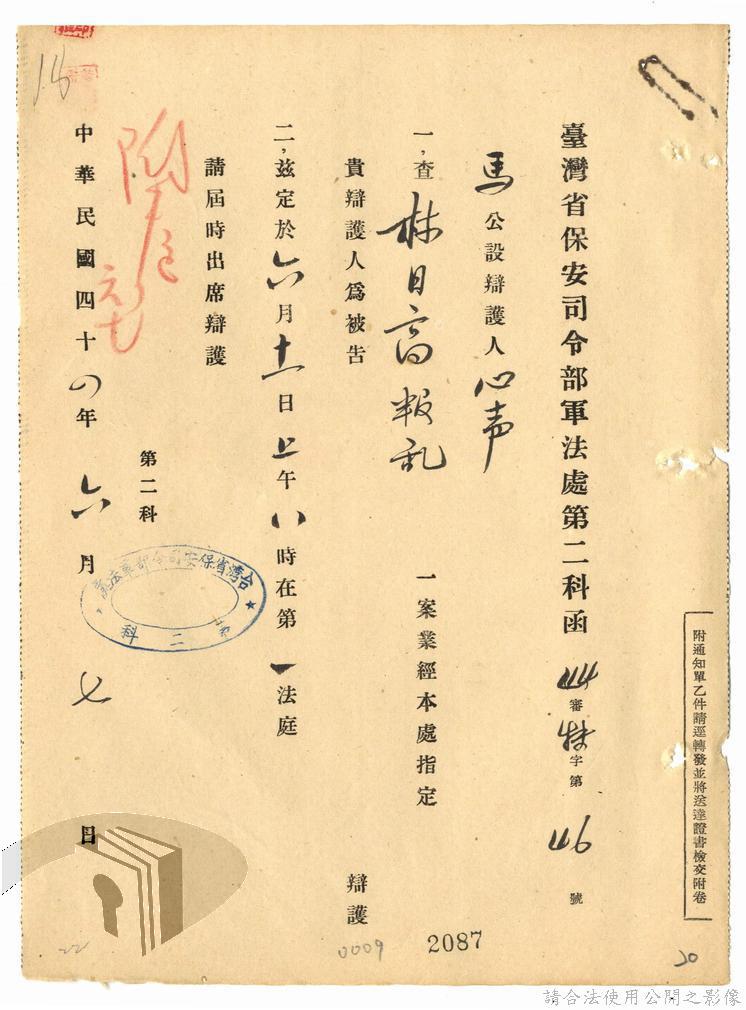 附通知單乙件請逕轉發並將送達證書檢交附卷
臺灣省保安司令部軍法處第二科函 44審特字第46號
馬公設辯護人心声
一，查林日高叛乱一案業經本處指定
貴辯護人為被告 辯護
二，茲定於六月十一日上午八時在第一法庭
請屆時出席辯護
第二科
台灣省保安司令部軍法處
第二科
附卷
六七
中華民國四十四年六月七日
18
20
2087
0009
22
請合法使用公開之影像